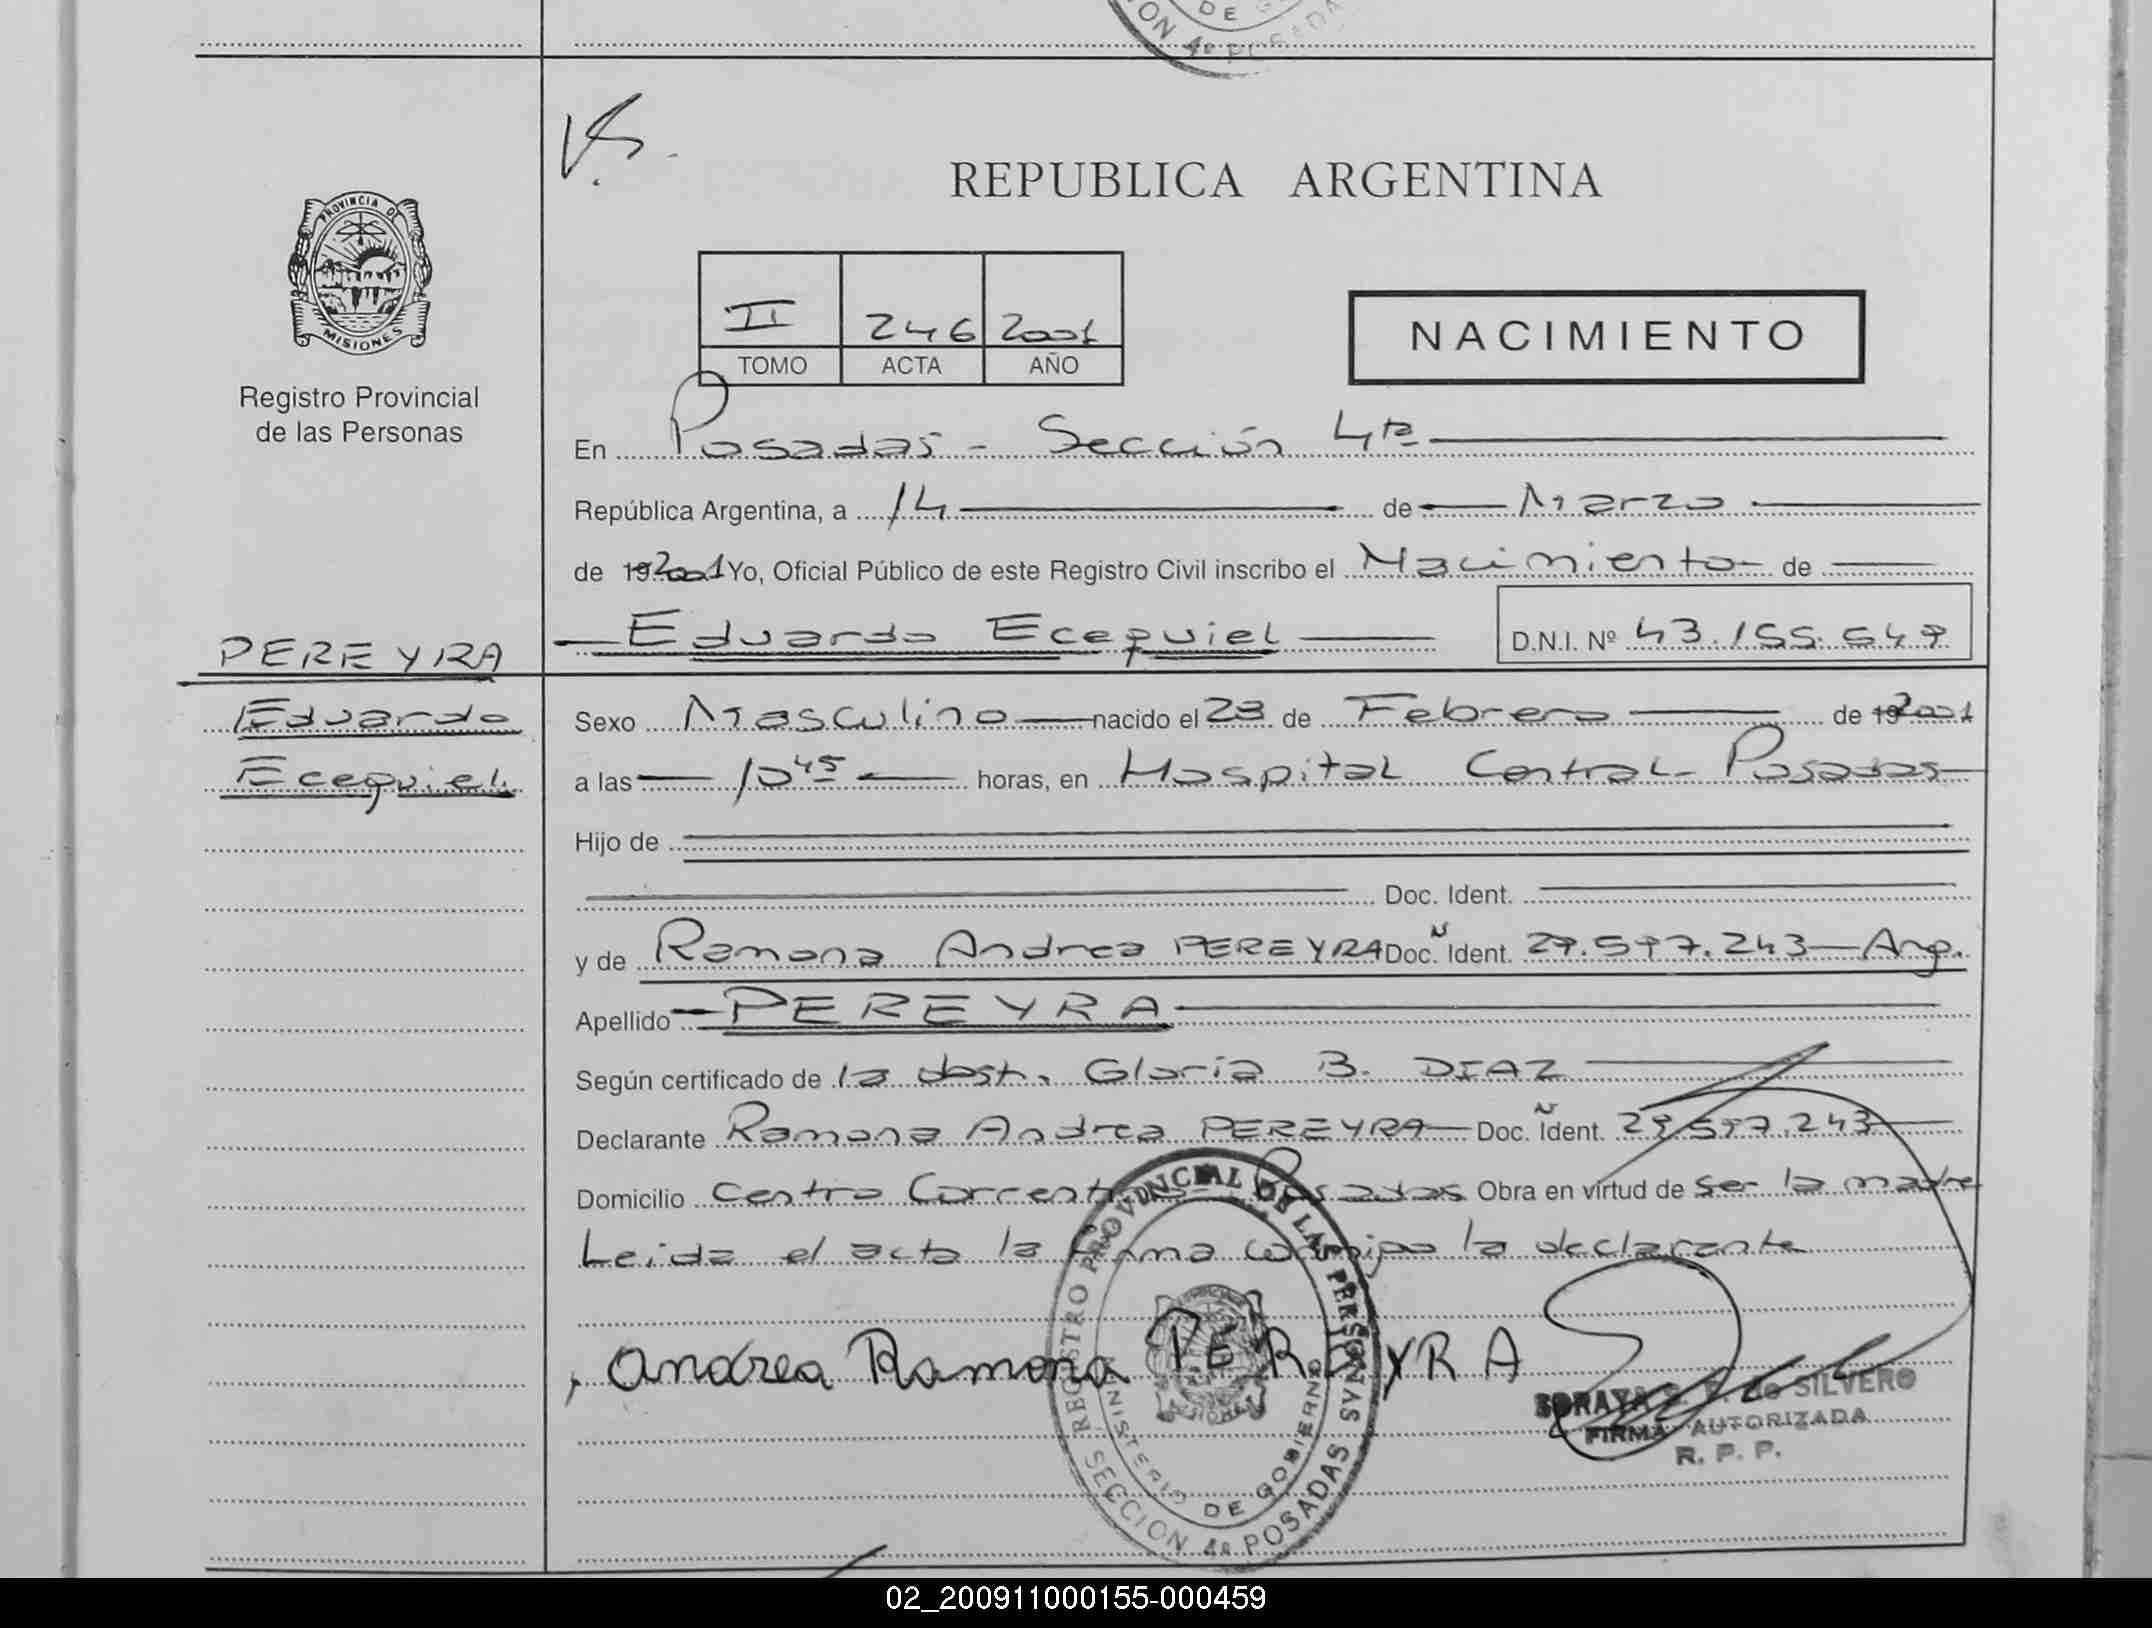 DE
ION 4ª POSADA
VS.
REPUBLICA ARGENTINA
PROVINCIA DE
MISIONES
II 246 2001
TOMO ACTA AÑO
NACIMIENTO
Registro Provincial
de las Personas
En Posadas - Sección 4ta
República Argentina, a 14 de Marzo
de 192001 Yo, Oficial Público de este Registro Civil inscribo el Nacimiento de
Eduardo Ecequiel D.N.I. Nº 43.155.549
PEREYRA
Eduardo
Ecequiel
Sexo Masculino nacido el 23 de Febrero de 192001
a las 10 45 horas, en Hospital Central - Posadas
Hijo de
Doc. Ident.
y de Ramona Andrea PEREYRA Doc. Ident. 29.597.243 - Arg.
Apellido PEREYRA
Según certificado de la obst. Gloria B. DIAZ
Declarante Ramona Andrea PEREYRA Doc. Ident. 29.597.243
Domicilio Centro Correntino - Posadas Obra en virtud de ser la madre
Leida el acta la firma conmigo la declarante
Andrea Ramona PEREYRA
REGISTRO PROVINCIAL DE LAS PERSONAS
MINISTERIO DE GOBIERNO
SECCION 4ª POSADAS
SORAYA de SILVERO
FIRMA AUTORIZADA
R. P. P.
02_200911000155-000459